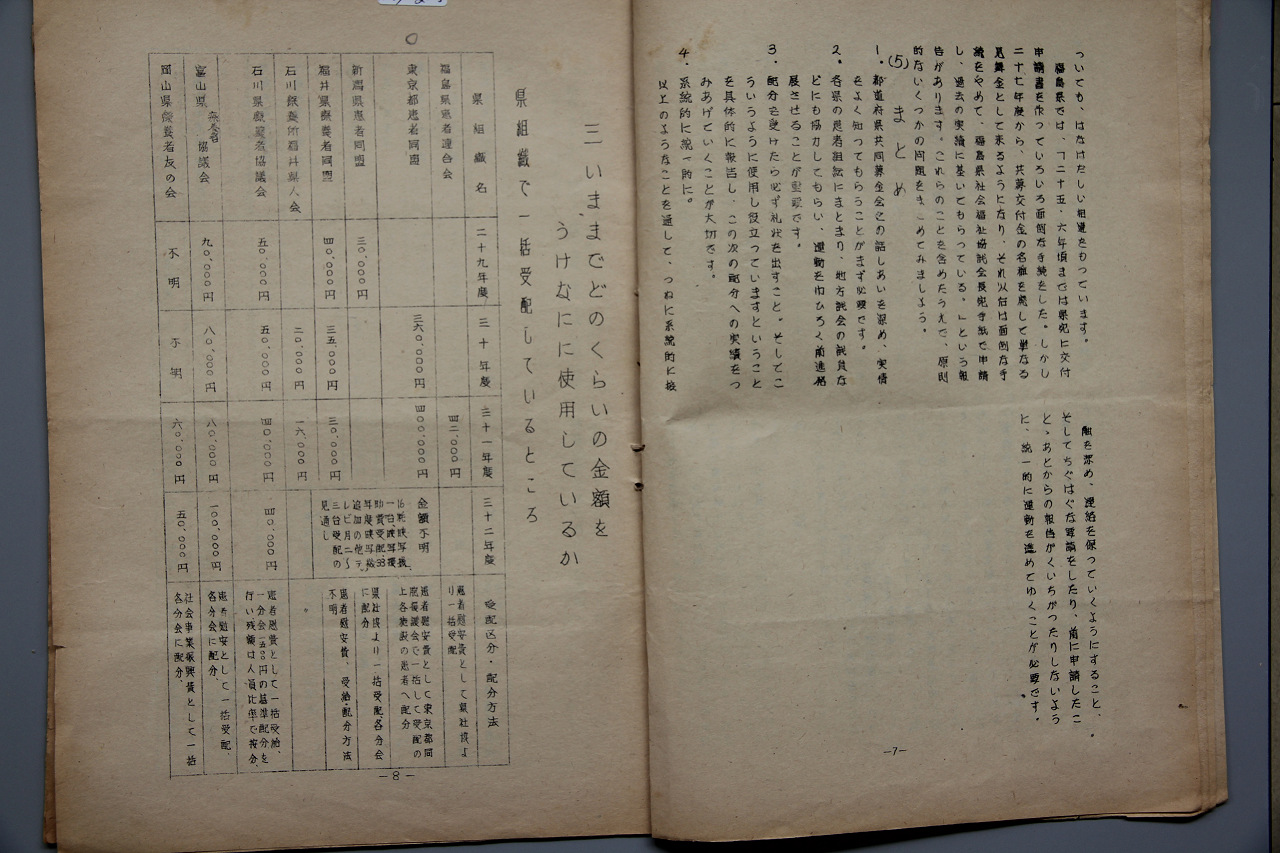 ついても、はなはだしい相違をもっています。
福島県では、「二十五、六年頃までは県宛に交付
申請書を作っていろいろ面倒な手続をした。しかし
二十七年度から、共募交付金の名称を廃して単なる
見舞金として来るようになり、それ以后は面倒な手
続をやめて、福島県社会福祉協議会長宛手紙で申請
し、過去の実績に基いてもらっている。」という報
告があります。これらのことを含めたうえで、原則
的ないくつかの問題をまとめてみましよう。
(5) まとめ
1. 都道府県共同募金会との話しあいを深め、実情
をよく知ってもらうことがまず必要です。
2. 各県の患者組織にまとまり、地方議会の議員な
どにも協力してもらい、運動をはゞひろく前進発
展させることが重要です。
3. 配分を受けたら必ず礼状を出すこと。そしてこ
ういうように使用し役立っていますということ
を具体的に報告し、この次の配分への実績をつ
みあげていくことが大切です。
4. 系統的に統一的に。
以上のようなことを通して、つねに系統的に接
触を深め、連絡を保っていくようにすること、
そしてちぐはぐな要請をしたり、前に申請したこ
とゝあとからの報告がくいちがったりしないよう
に、統一的に運動を進めてゆくことが必要です。
—7—
三 いままでどのくらいの金額を
うけなにに使用しているか
県組織で一括受配しているところ
県組織名 二十九年度 三十年度 三十一年度 三十二年度 受配区分・配分方法
福島県患者連合会 四二、〇〇〇円 患者慰安費として県社協よ
り一括受配
東京都患者同盟 三六〇、〇〇〇円 四〇〇、〇〇〇円 金額不明 患者慰安費として東京都同
盟協議会で一括して受配の
上各施設の患者へ配分
新潟県患者同盟 三〇、〇〇〇円 県社協より一括受配各分会
に配分
福井県療養者同盟 四〇、〇〇〇円 三五、〇〇〇円 三〇、〇〇〇円 患者慰安費、受給・配分方法
不明
16粍映写機
一台、映写機
助費受配、33
年度映写機
追加の他テ
レビ月二〜
三台受配の
見通し
石川県療養所福井県人会 二〇、〇〇〇円 一六、〇〇〇円 〃
石川県療養者協議会 五〇、〇〇〇円 五〇、〇〇〇円 四〇、〇〇〇円 四〇、〇〇〇円 患者慰安費として一括受給、
一分会一五〇〇円の基準配分を
行い残額は人員比率で按分、
富山県療養者協議会 九〇、〇〇〇円 八〇、〇〇〇円 八〇、〇〇〇円 一〇〇、〇〇〇円 患者慰安として一括受配、
各分会に配分、
岡山県療養者友の会 不明 不明 六〇、〇〇〇円 五〇、〇〇〇円 社会事業振興費として一括
各分会に配分、
—8—